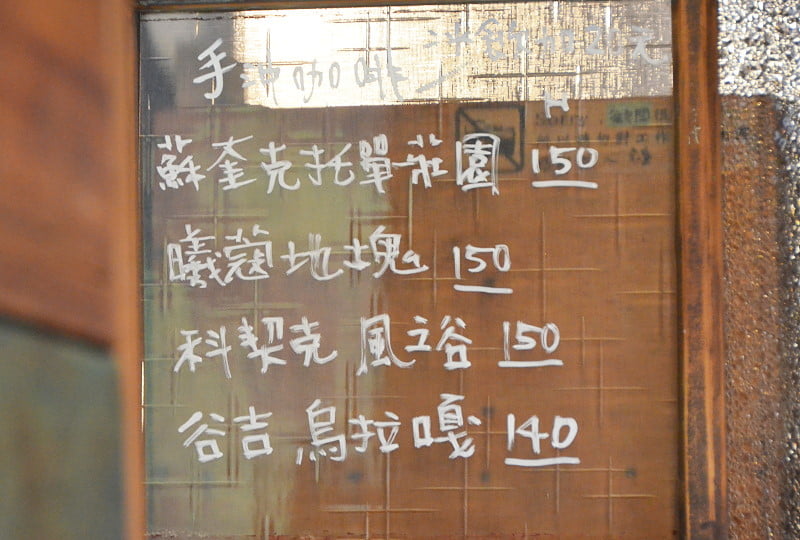 手沖咖啡 冰飲加20元
H
蘇奎克托單一莊園 150
曦蔻地土塊 150
科契克 風立谷 150
谷吉 烏拉嘎 140
Sorry,